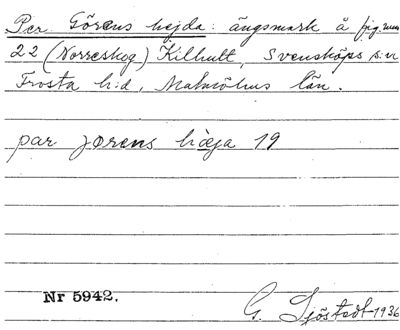 Per Görens hejda: ängsmark å fig. num
22 (Norreskog) Killhult, Svensköps s:n
Frosta h:d, Malmöhus län.
par jørens hæja 19
Nr 5942.
G. Sjöstedt 1936